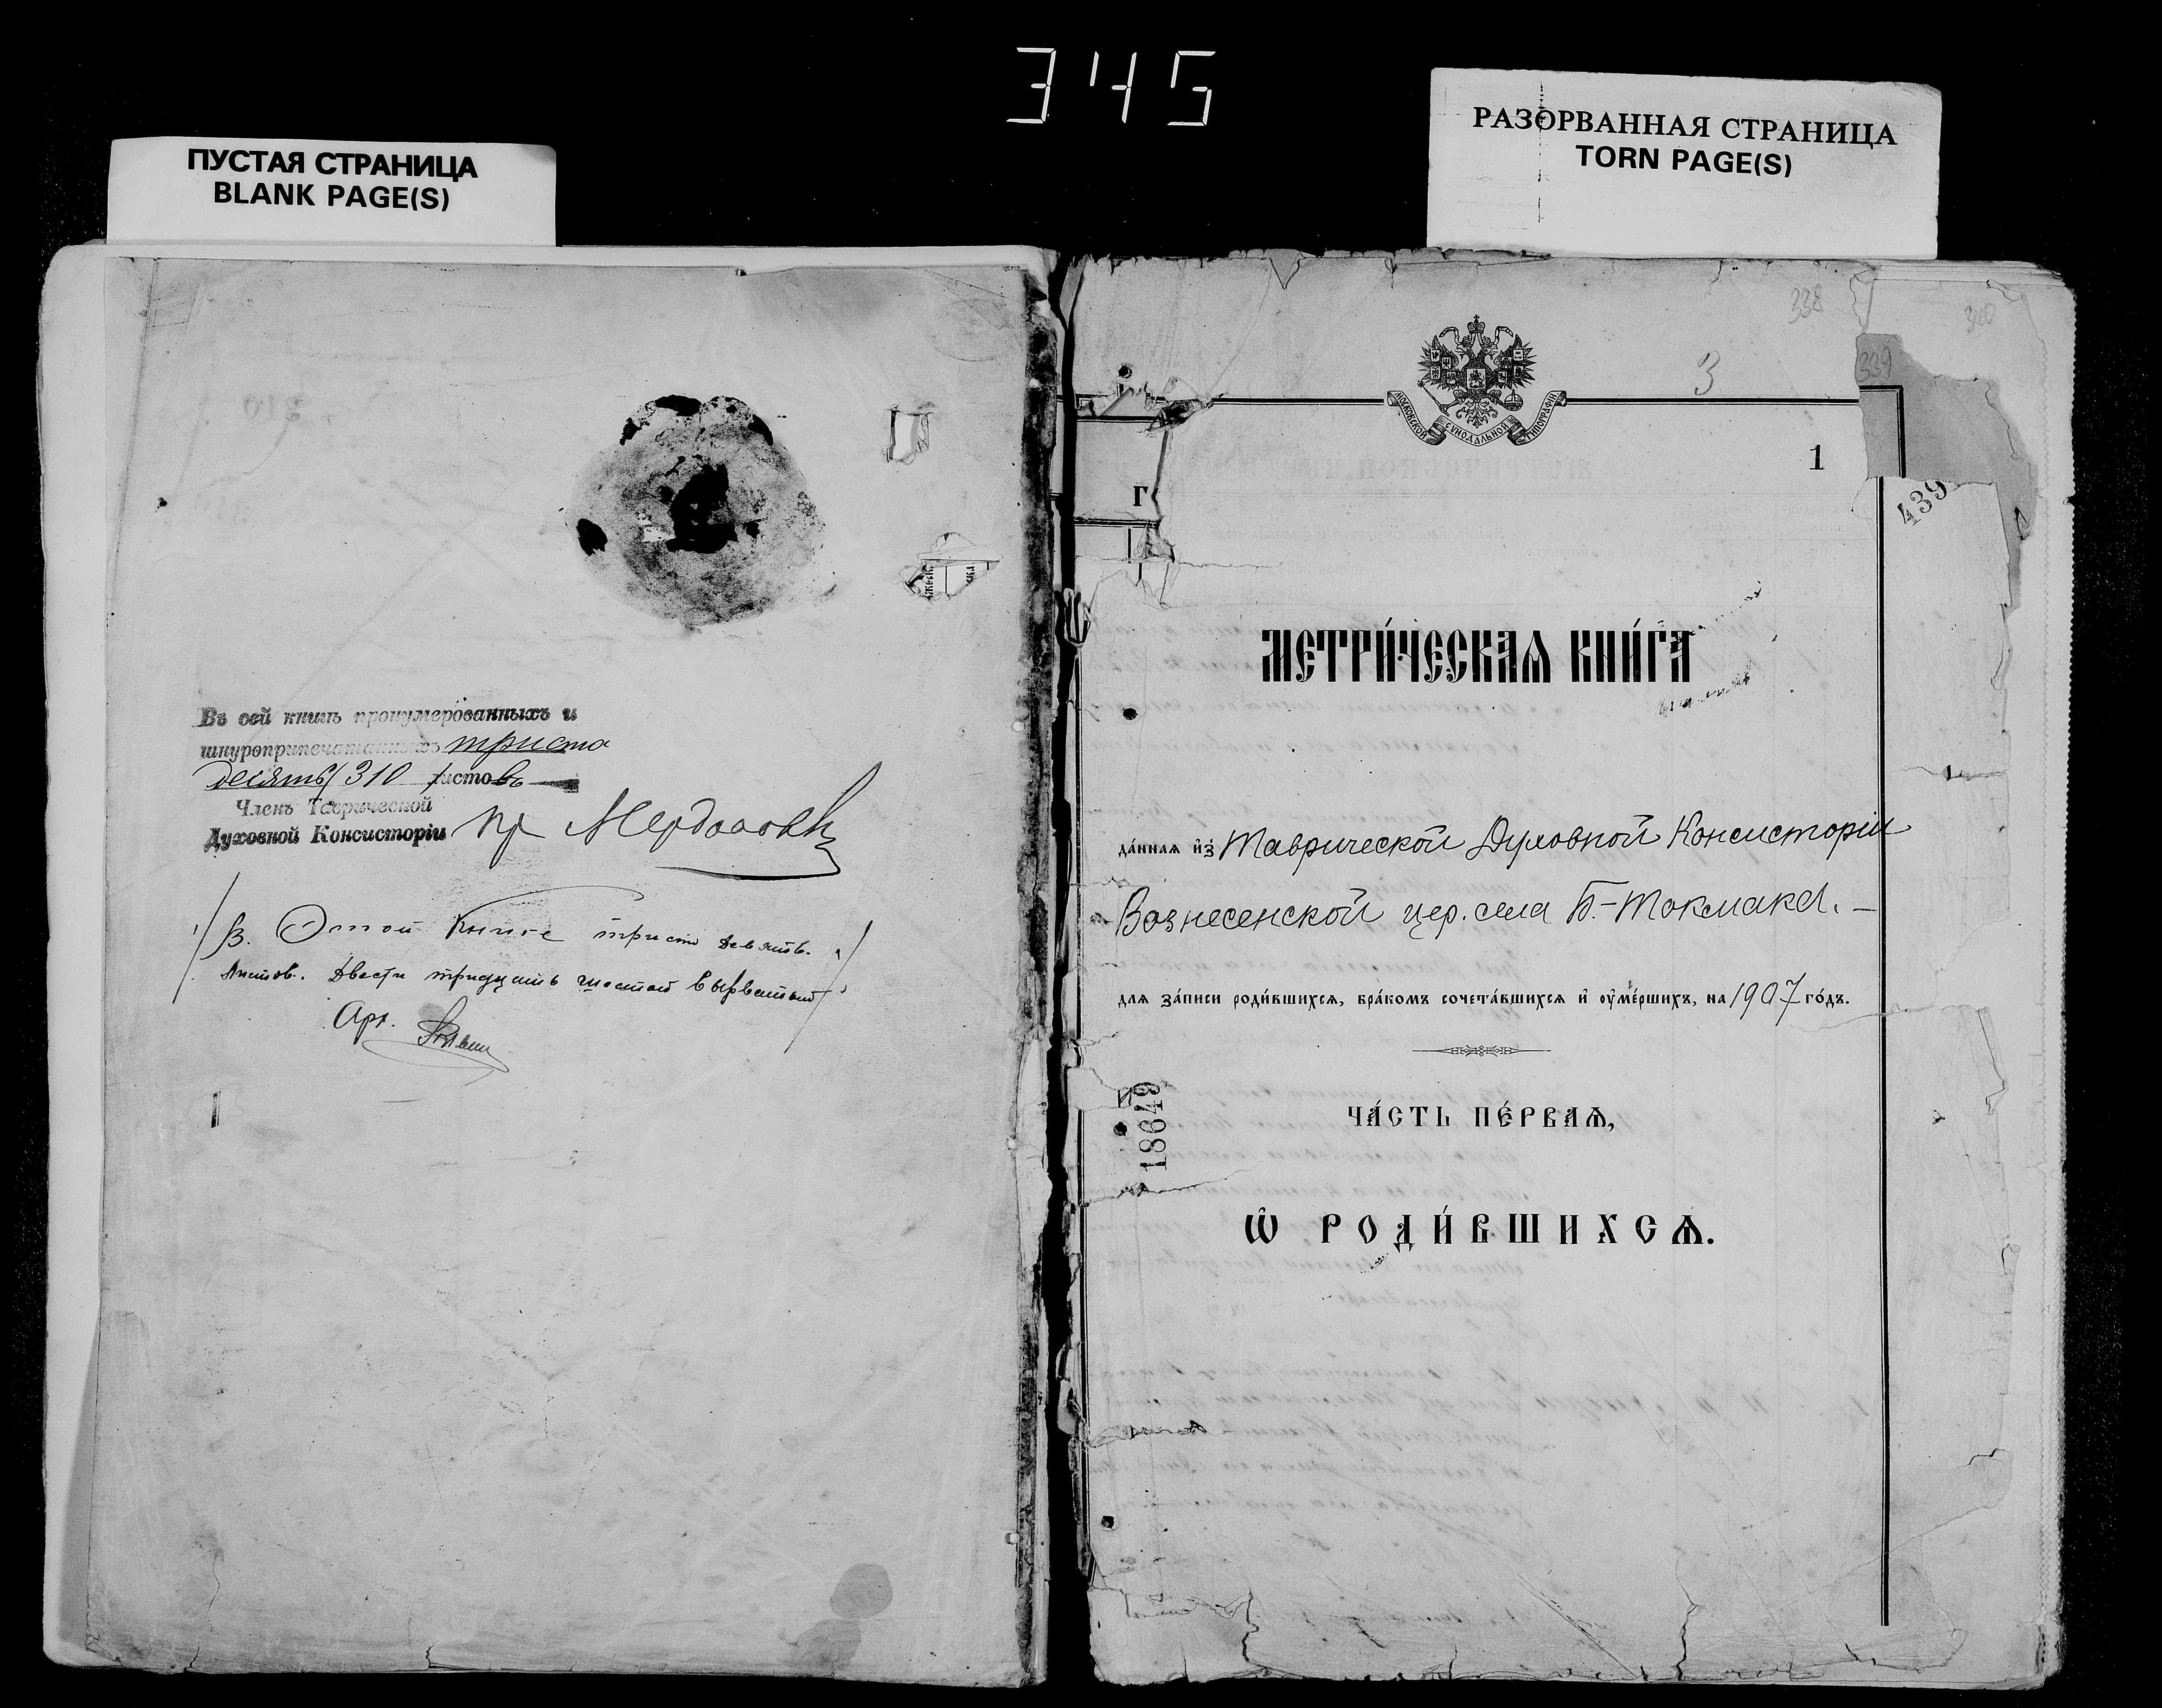 345
ПУСТАЯ СТРАНИЦА
BLANK PAGE(S)
РАЗОРВАННАЯ СТРАНИЦА
TORN PAGE(S)
310
Въ сей книгѣ пронумерованныхъ и
шнуроприпечатанныхъ триста
десять / 310 листовъ
Членъ Таврической
Духовной Консисторіи
В. Этой книге триста девять.
Листов. Двести тридцать шестой вырватый
Арх.
338
340
339
3
МОСКОВСКОЙ СѴНОДАЛЬНОЙ ТИПОГРАФІИ
1
439
Г
МЕТРИ́ЧЕСКАѦ КНИ́ГА
да́ннаѧ и҆з̾ Таврической Духовной Консисторіи
Вознесенской цер. села Б.-Токмака. –
для за́писи роди́вшихсѧ, бра́комъ сочета́вшихсѧ и҆ оу҆ме́ршихъ, на 1907 го́дъ.
18649
ЧА́СТЬ ПЕ́РВАѦ,
Ѡ҆ РОДИ́ВШИХСѦ.